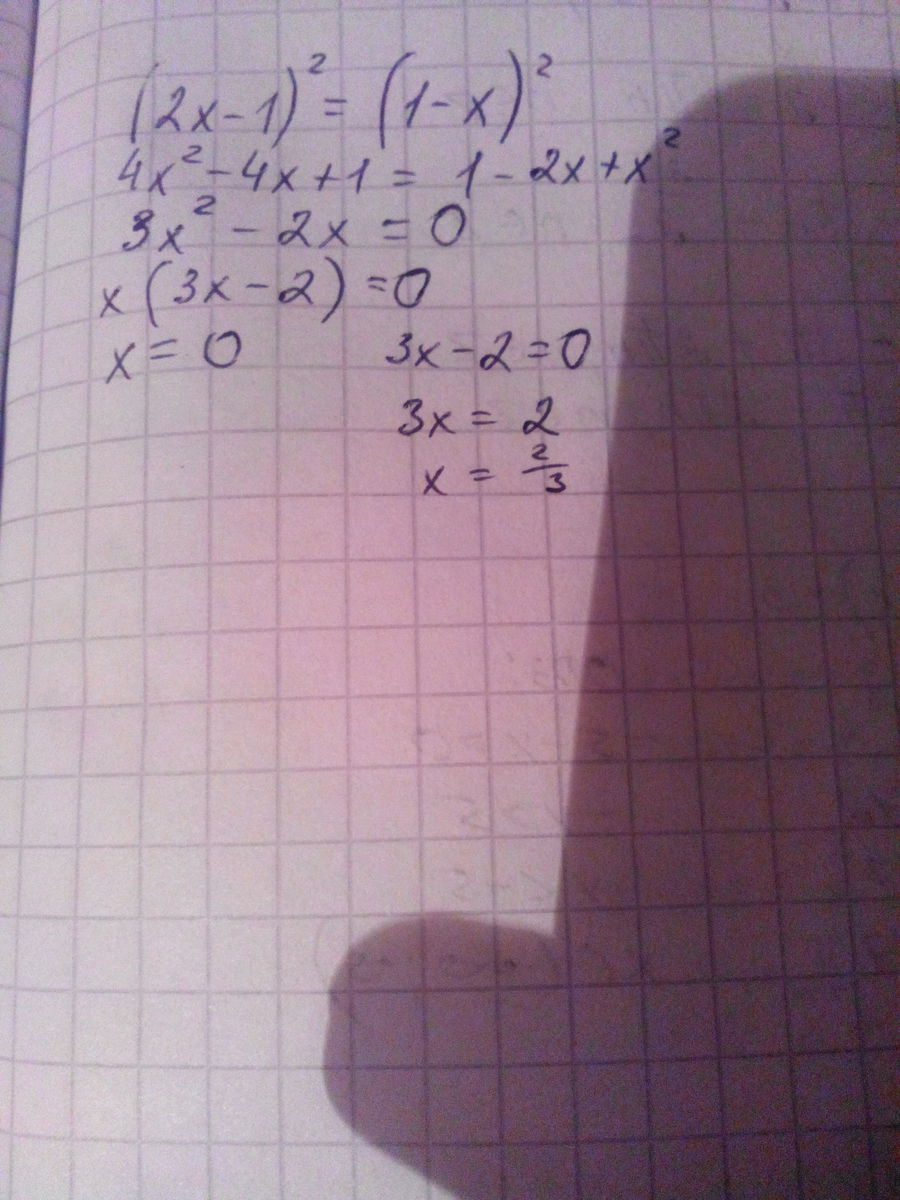 (2x-1)² = (1-x)²
4x²-4x+1 = 1-2x+x²
3x² - 2x = 0
x(3x-2)=0
x = 0 3x-2=0
3x = 2
x = 2/3